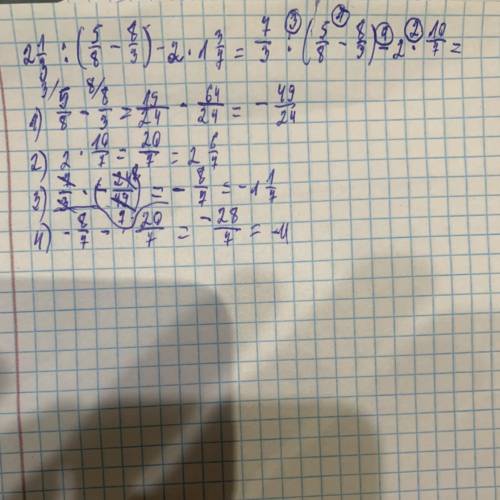 2 1/3 : (5/8 - 8/3) - 2 · 1 3/7 = 7/3 : (5/8 - 8/3) - 2 · 10/7 =
1) 5/8 - 8/3 = 15/24 - 64/24 = - 49/24
2) 2 · 10/7 = 20/7 = 2 6/7
3) 7/3 · (- 24/49) = - 8/7 = - 1 1/7
4) - 8/7 - 20/7 = - 28/7 = - 4